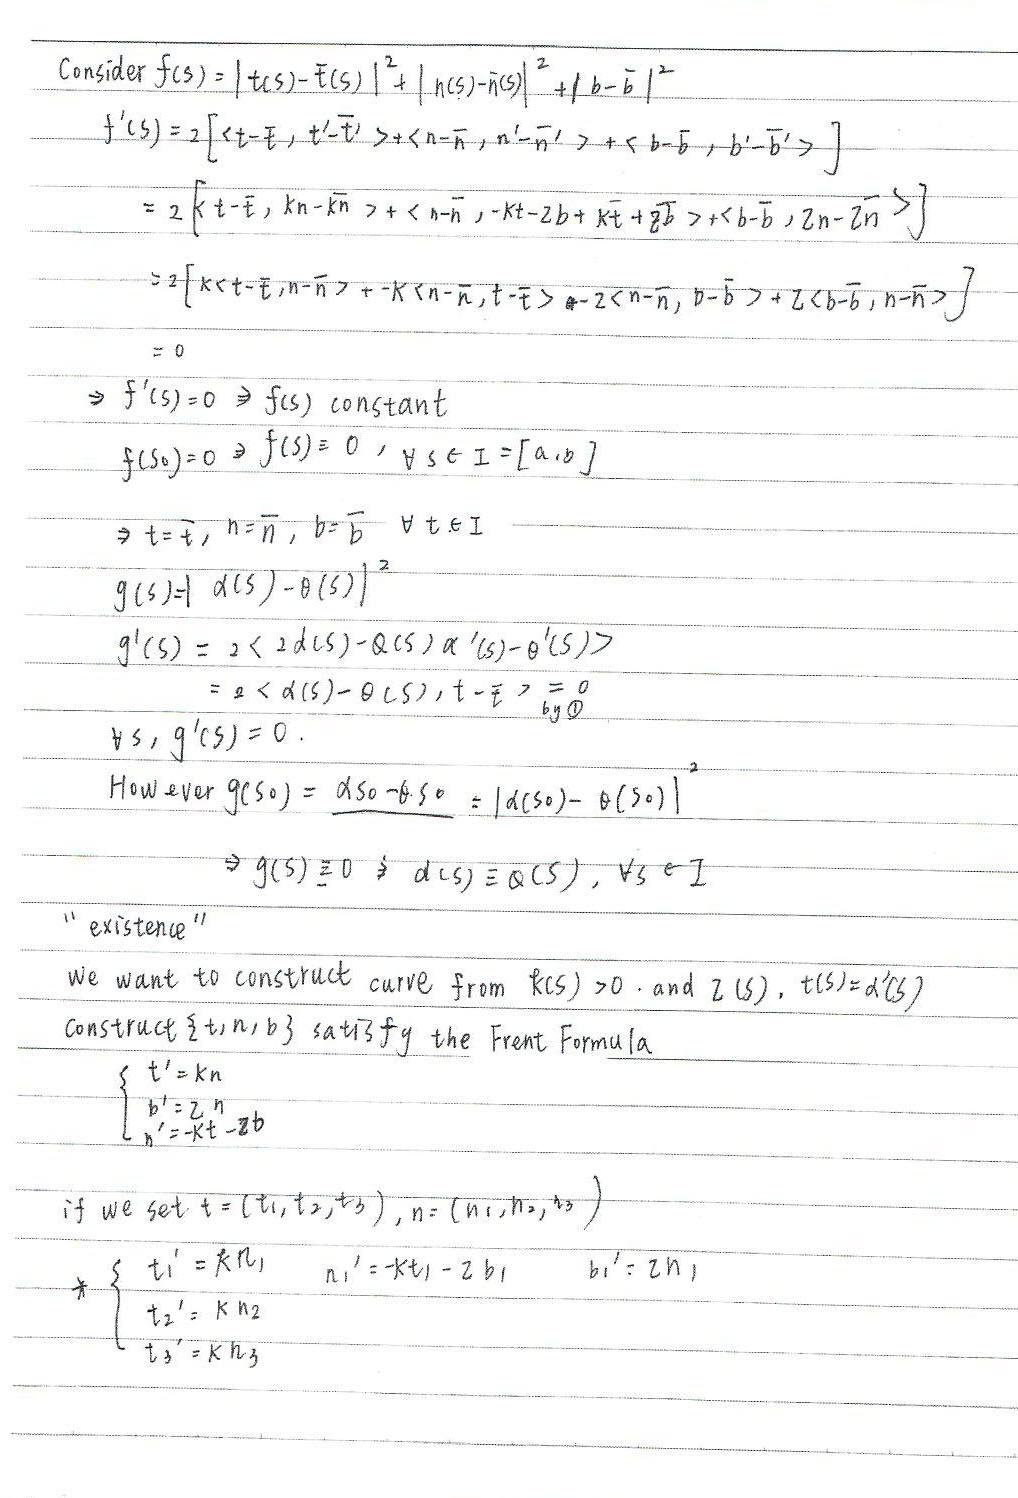 Consider f(s) = |t(s)-t̄(s)|²+|n(s)-n̄(s)|²+|b-b̄|²
f'(s) = 2[<t-t̄, t'-t̄'>+<n-n̄, n'-n̄'>+<b-b̄, b'-b̄'>]
= 2[<t-t̄, kn-kn̄>+<n-n̄, -kt-2b+kt̄+2b̄>+<b-b̄, 2n-2n̄>]
= 2[k<t-t̄, n-n̄> + -k<n-n̄, t-t̄> -2<n-n̄, b-b̄>+2<b-b̄, n-n̄>]
= 0
⇒ f'(s)=0 ⇒ f(s) constant
f(s₀)=0 ⇒ f(s)≡0, ∀s∈I=[a,b]
⇒ t=t̄, n=n̄, b=b̄ ∀t∈I
g(s)=|α(s)-θ(s)|²
g'(s) = 2<2α(s)-θ(s) α'(s)-θ'(s)>
= 2<α(s)-θ(s), t-t̄> = 0
by ①
∀s, g'(s)=0.
However g(s₀) = αs₀-θs₀ = |α(s₀)-θ(s₀)|²
⇒ g(s)≡0 ⇒ α(s)≡θ(s), ∀s∈I
"existence"
We want to construct curve from k(s)>0. and 2(s), t(s)=α'(s)
construct {t,n,b} satisfy the Frent Formula
{ t'=kn
b'=2n
n'=-kt-2b
if we set t=(t₁,t₂,t₃), n=(n₁,n₂,n₃)
* { t₁'=kn₁ n₁'=-kt₁-2b₁ b₁'=2n₁
t₂'=kn₂
t₃'=kn₃